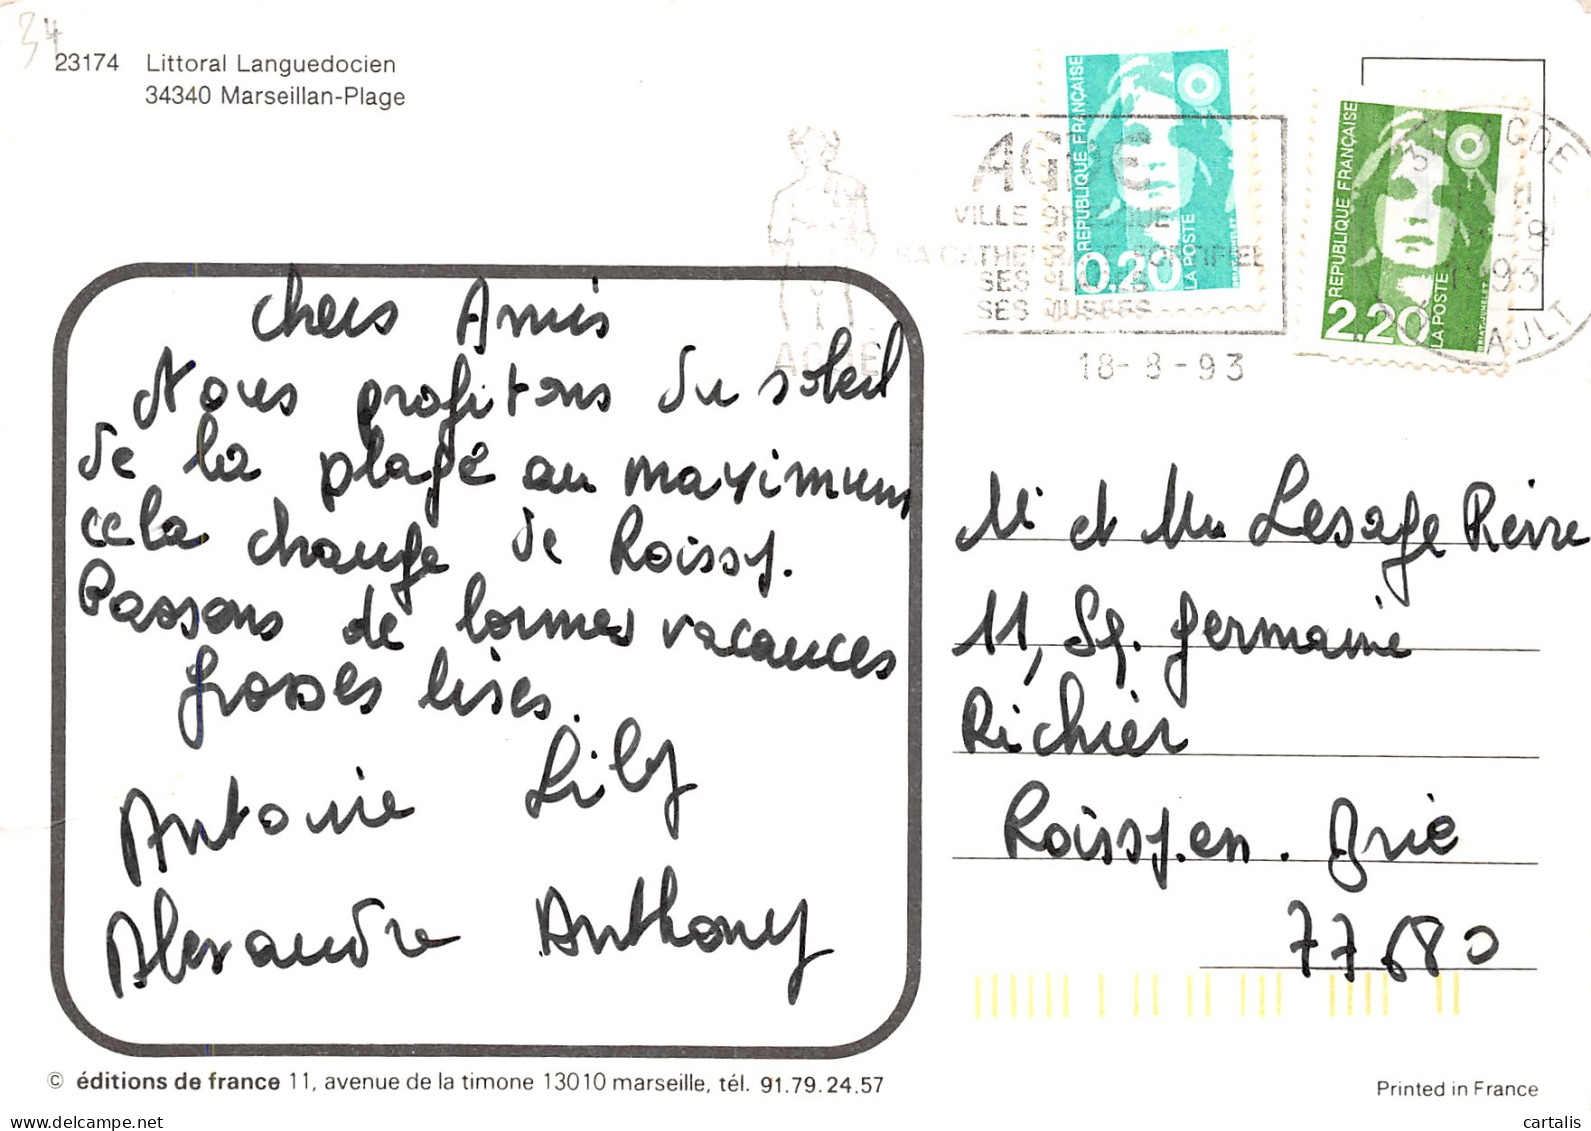 34
23174 Littoral Languedocien
34340 Marseillan-Plage
RÉPUBLIQUE FRANÇAISE
0.20
LA POSTE
RÉPUBLIQUE FRANÇAISE
2.20
LA POSTE
AGDE
VILLE
SES
SES MUSÉES
AGDE
18-8-93
AGDE
93
chers Amis
Nous profitons du soleil
de la plage au maximum
cela change de Roissy.
Passons de bonnes vacances
grosses bises.
Lily
Antoine
Alexandre Anthony
Mr et Mme Lesage Pierre
11, Sq. germaine
Richier
Roissy.en. Brie
77680
© éditions de france 11, avenue de la timone 13010 marseille, tél. 91.79.24.57
Printed in France
www.delcampe.net
cartalis